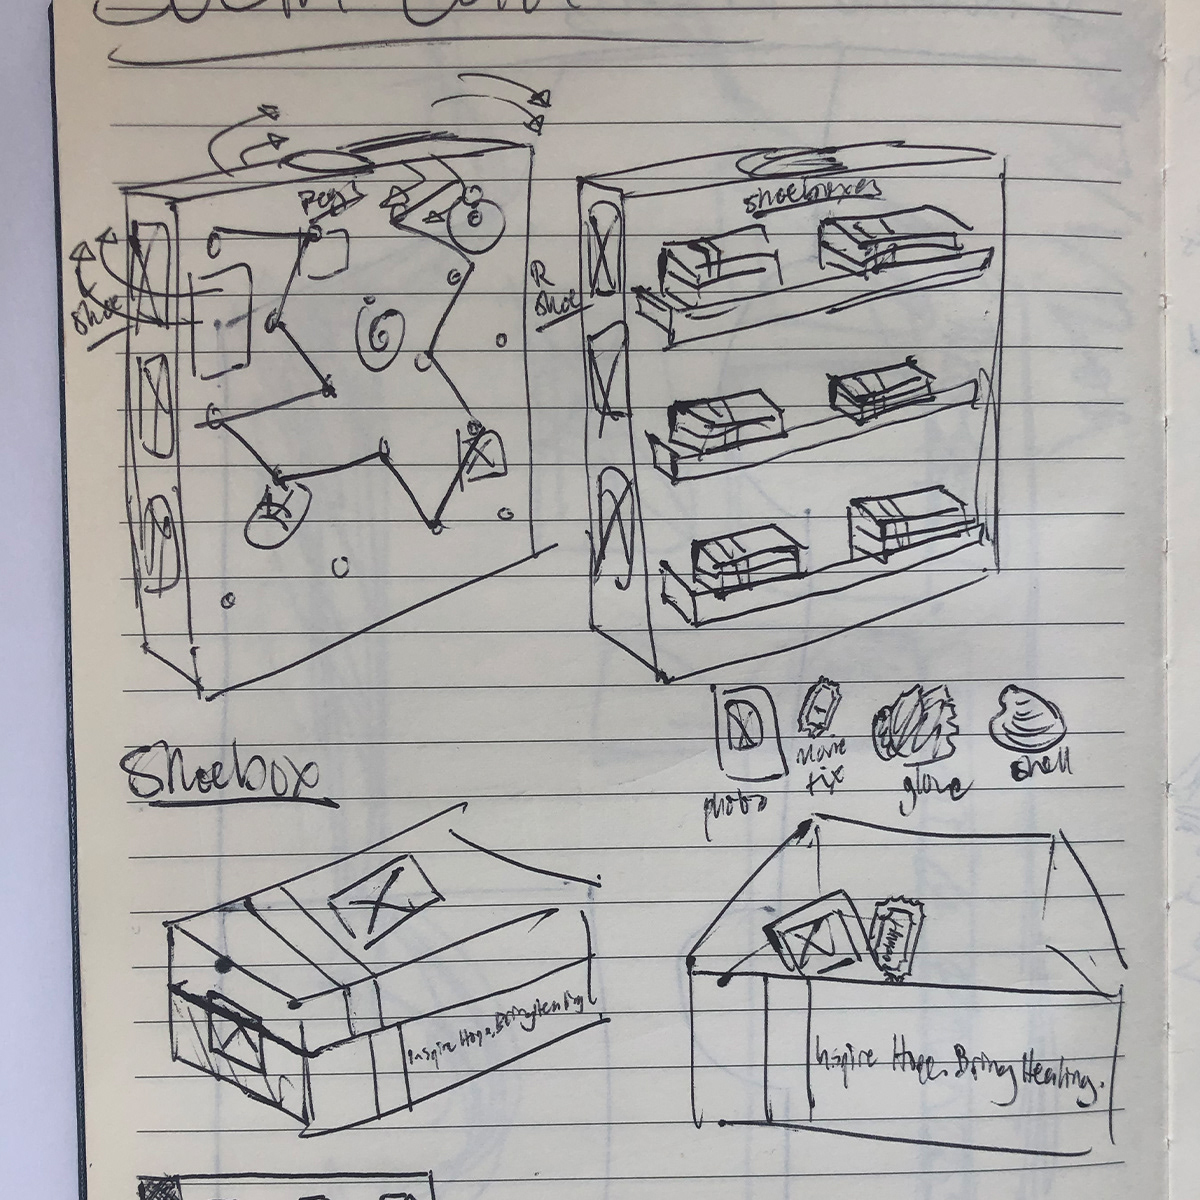 pegs
shoeboxes
shoe
R
shoe
Shoebox
photo
movie
tix
glove
shell
Inspire Hope. Bring Healing
Inspire Hope. Bring Healing.